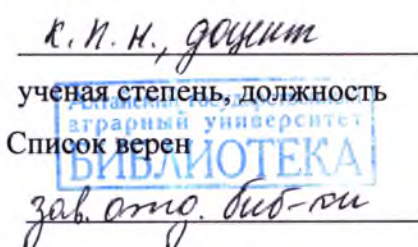 к.п.н., доцент
ученая степень, должность
Алтайский государственный
аграрный университет
Список верен
БИБЛИОТЕКА
зав. отд. биб-ки